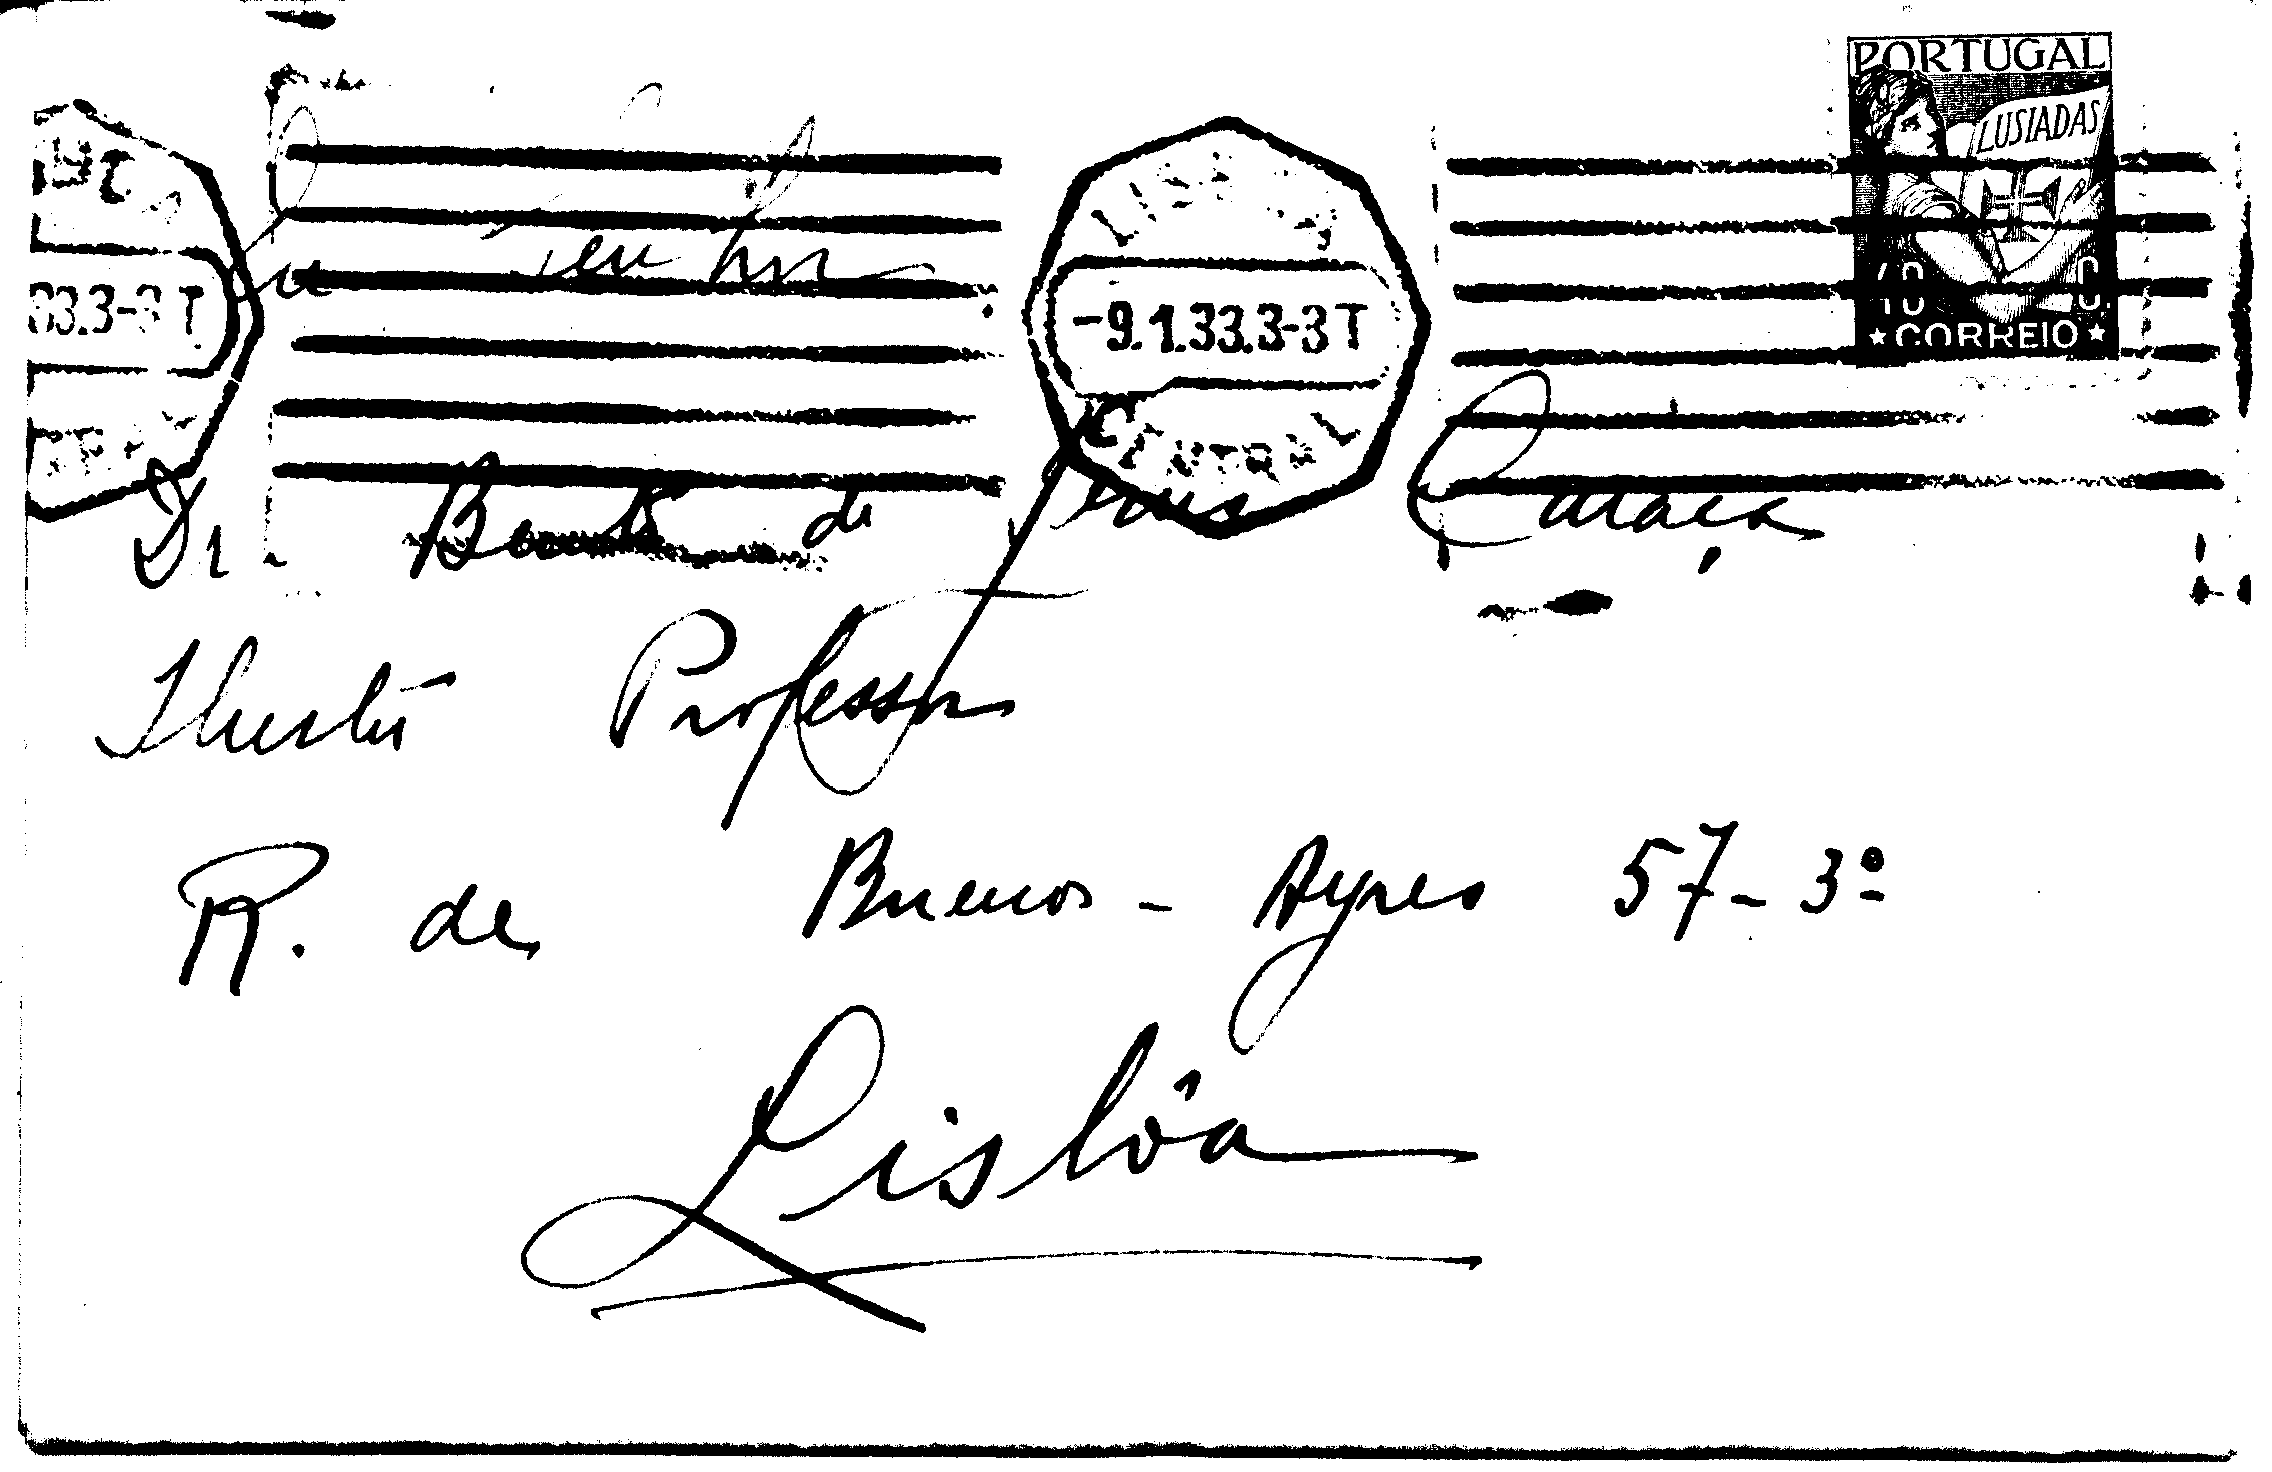 PORTUGAL
LUSIADAS
40 C
CORREIO
LISBOA
-9.1.33.3-3 T
CENTRAL
33.3-3 T
Dr. Bento de Jesus Caraça
Ilustre Professor
R. de Buenos-Ayres 57-3º
Lisbôa